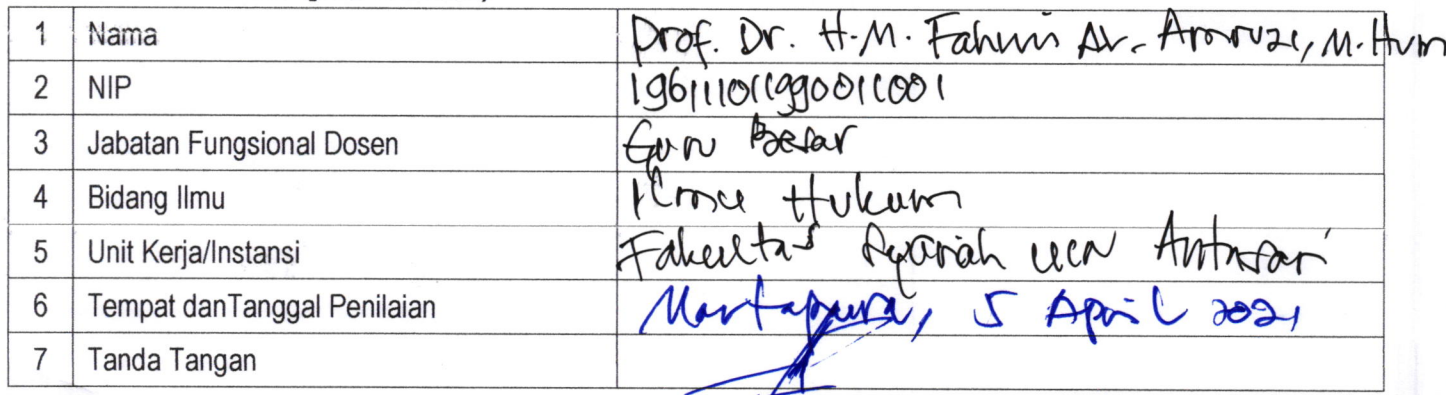 1 Nama Prof. Dr. H. M. Fahmi Al- Amruzi, M. Hum
2 NIP 196111011990011001
3 Jabatan Fungsional Dosen Guru Besar
4 Bidang Ilmu Ilmu Hukum
5 Unit Kerja/Instansi Fakultas Syariah UIN Antasari
6 Tempat danTanggal Penilaian Martapura, 5 April 2021
7 Tanda Tangan